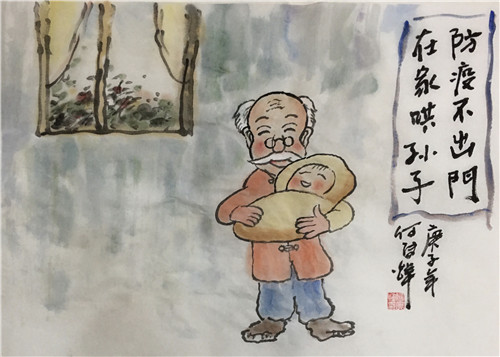 防疫不出門
在家哄孙子
庚子年
何